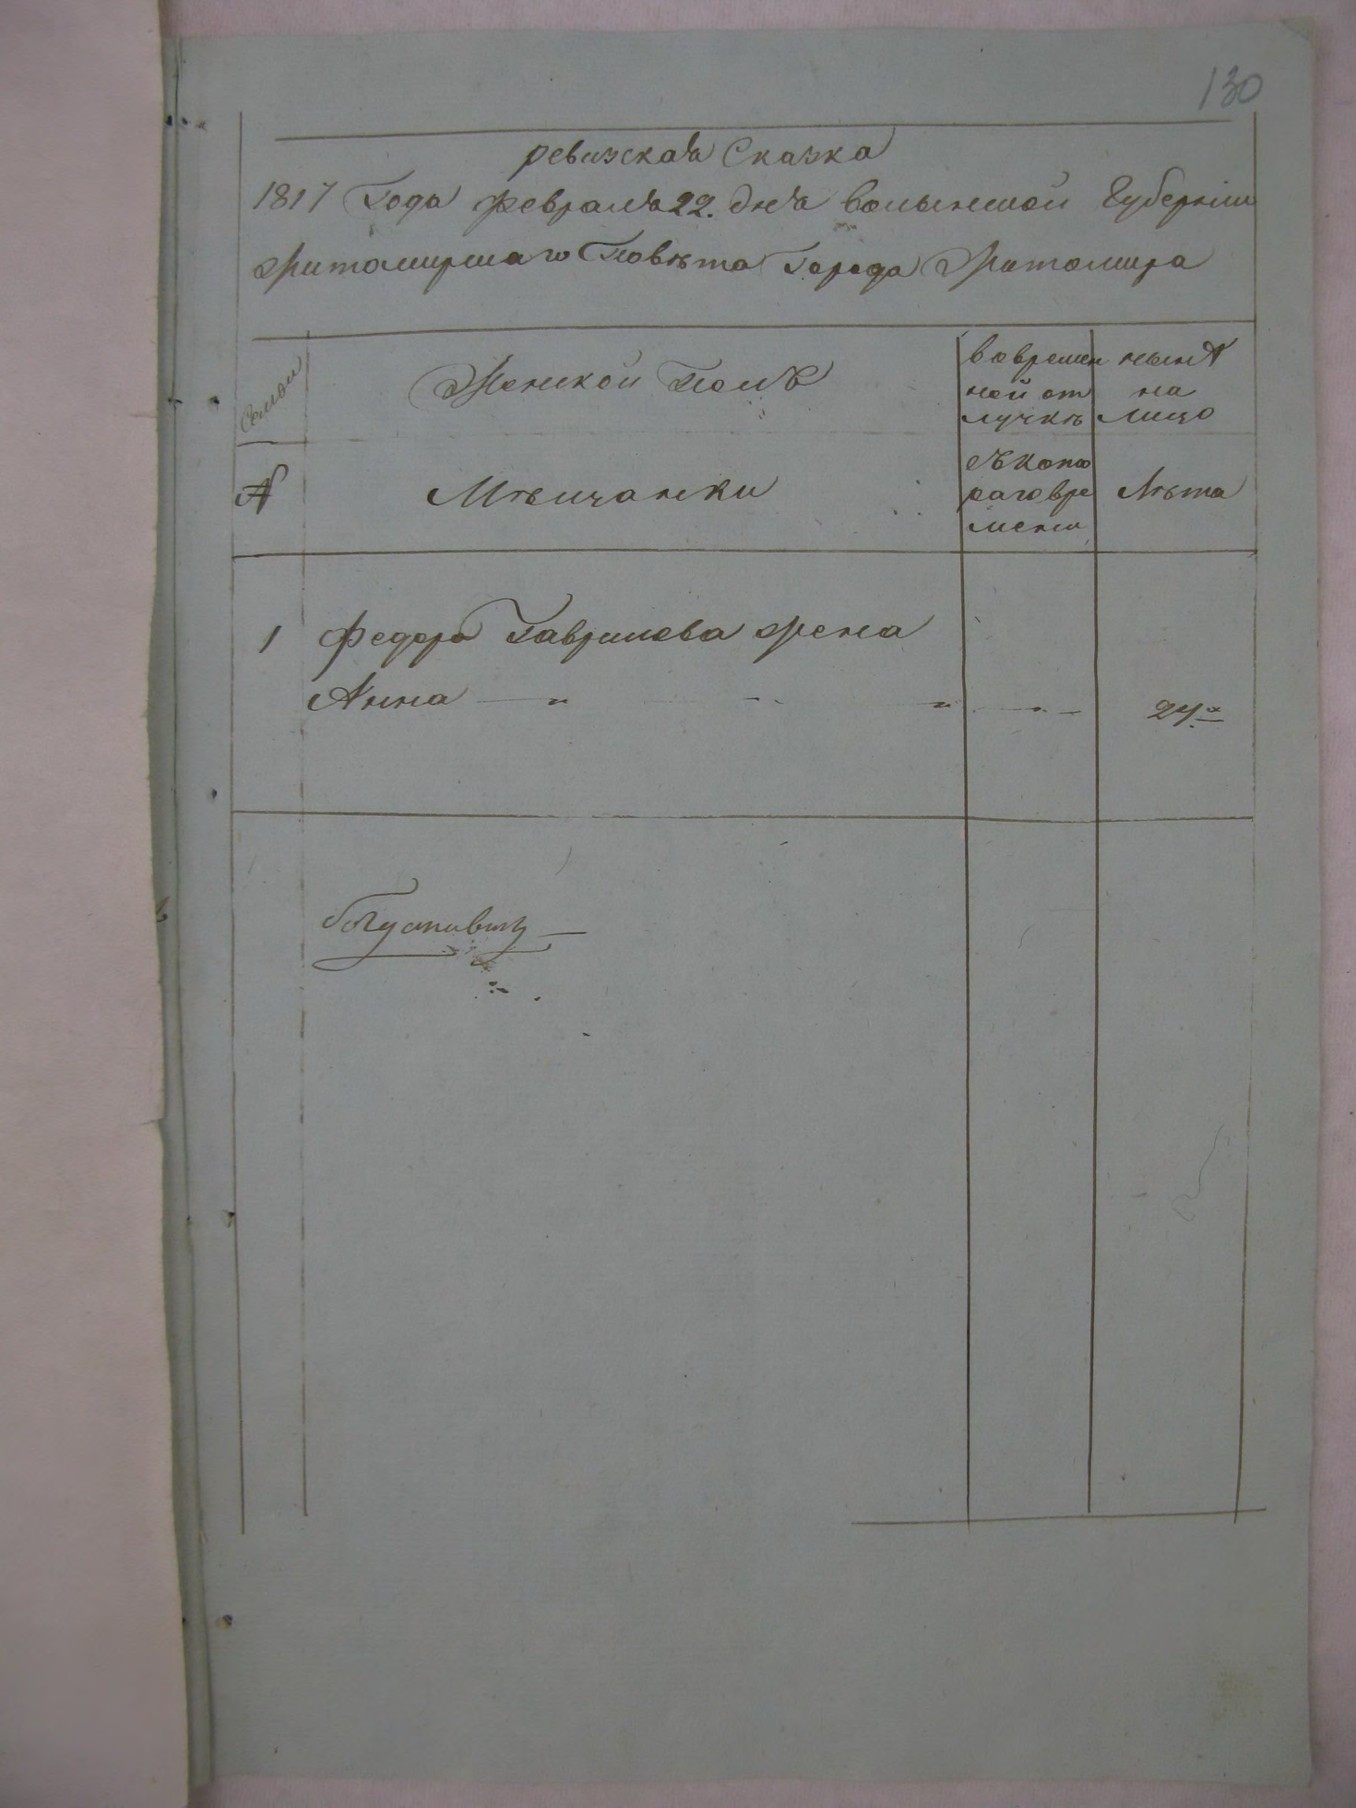 130
ревизская Сказка
1817 Года февраля 22. дня Волынской Губернiи
Житомирскаго Повѣта Города Житомира
Семьи
Женской Полъ
вовремен
ной от
лучкѣ
нынѣ
на
лицо
№
Мѣщанки
Съкото
раговре
мени
Лѣта
1 Федора Гаврилова жена
Анна — " — " — 24.